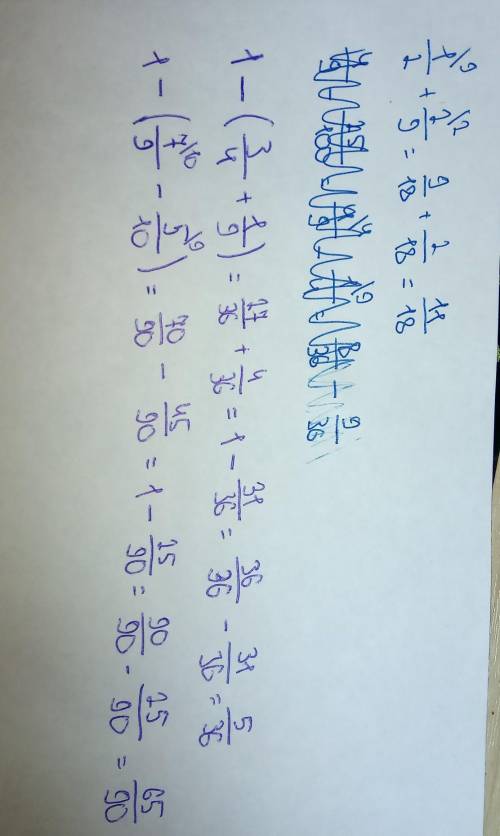 1\9/2 + 1\2/9 = 9/18 + 2/18 = 11/18
9/36
1 - (3/4 + 1/9) = 27/36 + 4/36 = 1 - 31/36 = 36/36 - 31/36 = 5/36
1 - (7\10/9 - 5\9/10) = 70/90 - 45/90 = 1 - 25/90 = 90/90 - 25/90 = 65/90